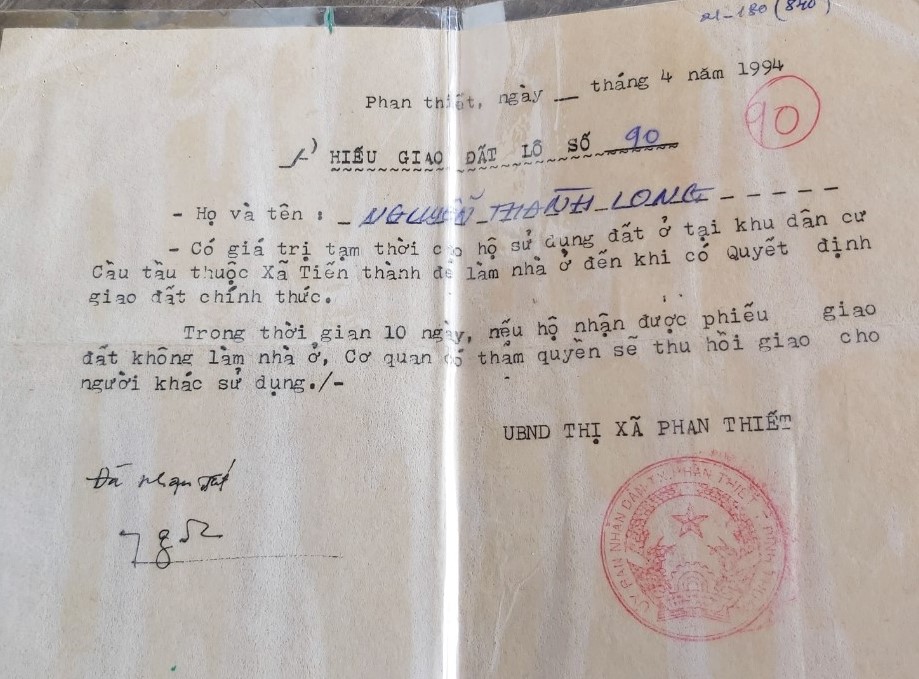 21-180 (840)
Phan thiết, ngày __ tháng 4 năm 1994
90
PHIẾU GIAO ĐẤT LÔ SỐ 90
- Họ và tên : NGUYỄN THANH LONG
- Có giá trị tạm thời cho hộ sử dụng đất ở tại khu dân cư
Cầu tầu thuộc Xã Tiến thành để làm nhà ở đến khi có Quyết định
giao đất chính thức.
Trong thời gian 10 ngày, nếu hộ nhận được phiếu giao
đất không làm nhà ở, Cơ quan có thẩm quyền sẽ thu hồi giao cho
người khác sử dụng./-
UBND THỊ XÃ PHAN THIẾT
Đã nhận đất
ỦY BAN NHÂN DÂN T.X. PHAN THIẾT